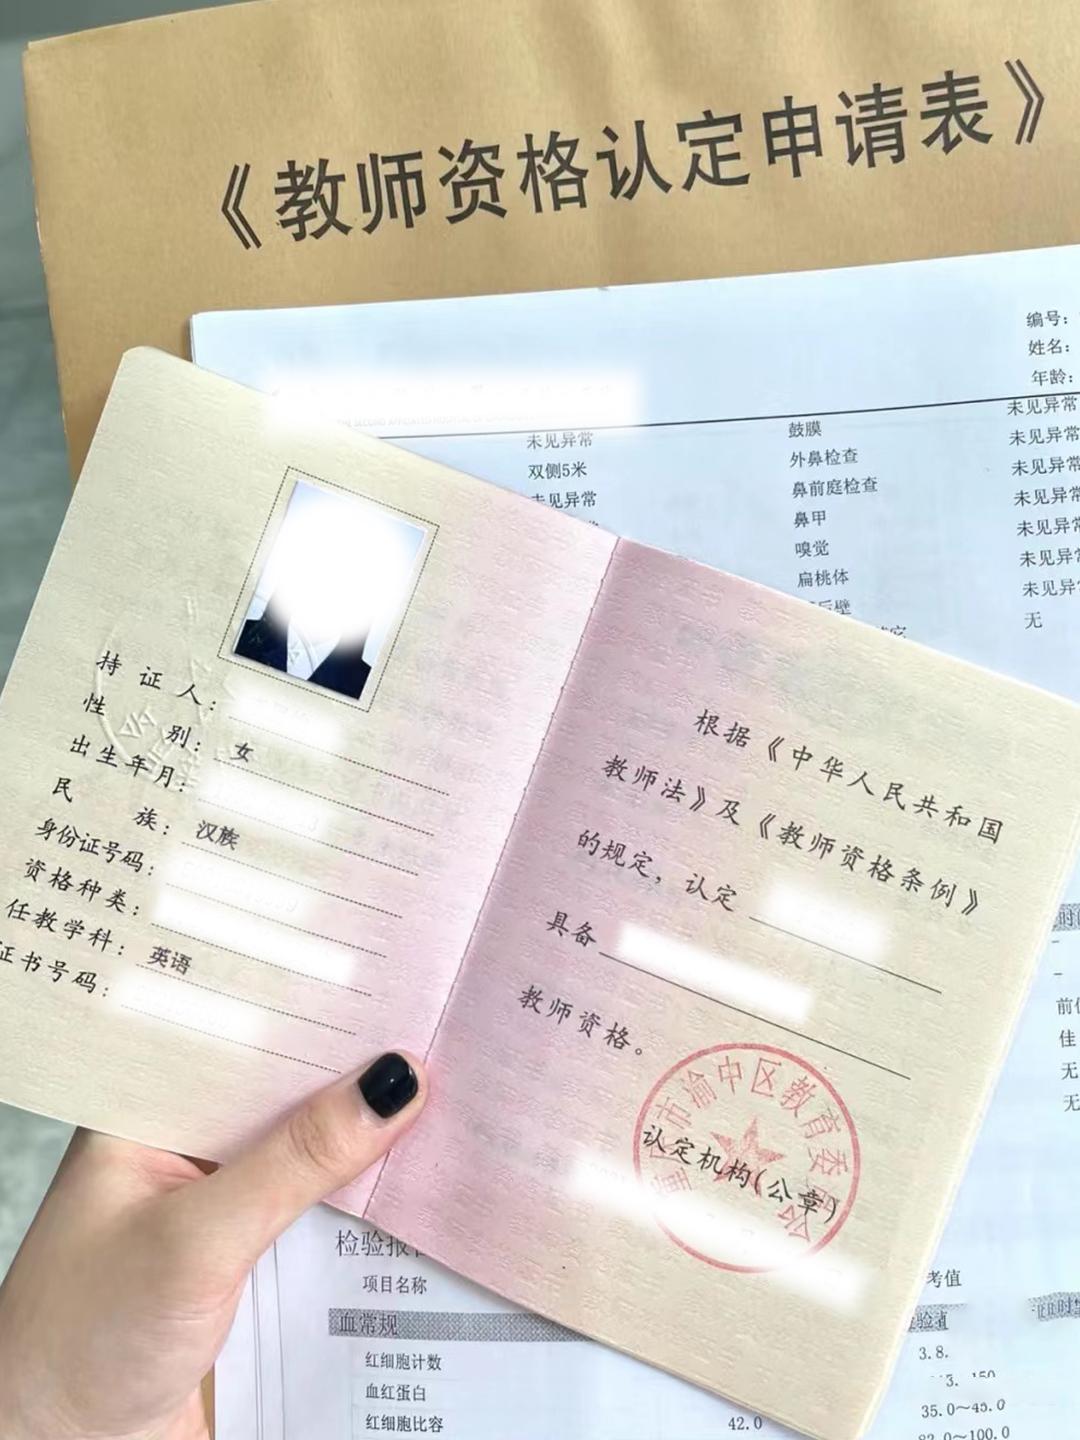 《教师资格认定申请表》
编号：
姓名：
年龄：
未见异常
鼓膜
未见异常
双侧5米
外鼻检查
未见异常
未见异常
鼻前庭检查
未见异常
鼻甲
未见异常
嗅觉
未见异常
扁桃体
未见异常
后壁
无
持证人：
性别：女
出生年月：
民族：汉族
身份证号码：
资格种类：
任教学科：英语
证书号码：
根据《中华人民共和国
教师法》及《教师资格条例》
的规定，认定
具备
教师资格。
市渝中区教育委
认定机构(公章)
前
佳
无
无
检验报
项目名称
考值
血常规
红细胞计数
3.8.
血红蛋白
150
红细胞比容
42.0
35.0～45.0
100.0